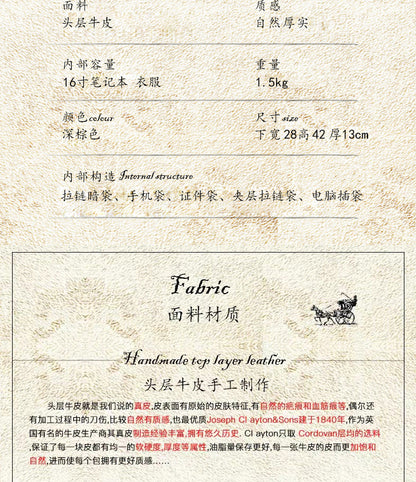 面料 质感
头层牛皮 自然厚实
内部容量 重量
16寸笔记本 衣服 1.5kg
颜色colour 尺寸size
深棕色 下宽28高42厚13cm
内部构造 Internal structure
拉链暗袋、手机袋、证件袋、夹层拉链袋、电脑插袋
Fabric
面料材质
Handmade top layer leather
头层牛皮手工制作
头层牛皮就是我们说的真皮,皮表面有原始的皮肤特征,有自然的疤痕和血筋痕等,偶尔还
有加工过程中的刀伤,比较自然有质感,也最优质Joseph Cl ayton&Sons建于1840年,作为英
国有名的牛皮生产商其真皮制造经验丰富,拥有悠久历史. Cl ayton只取 Cordovan层均的选料
,保证了每一块皮都有均一的软硬度,厚度等属性,油脂量保存更好,每一张牛皮的皮而更加饱和
自然,进而使每个包拥有更好质感......